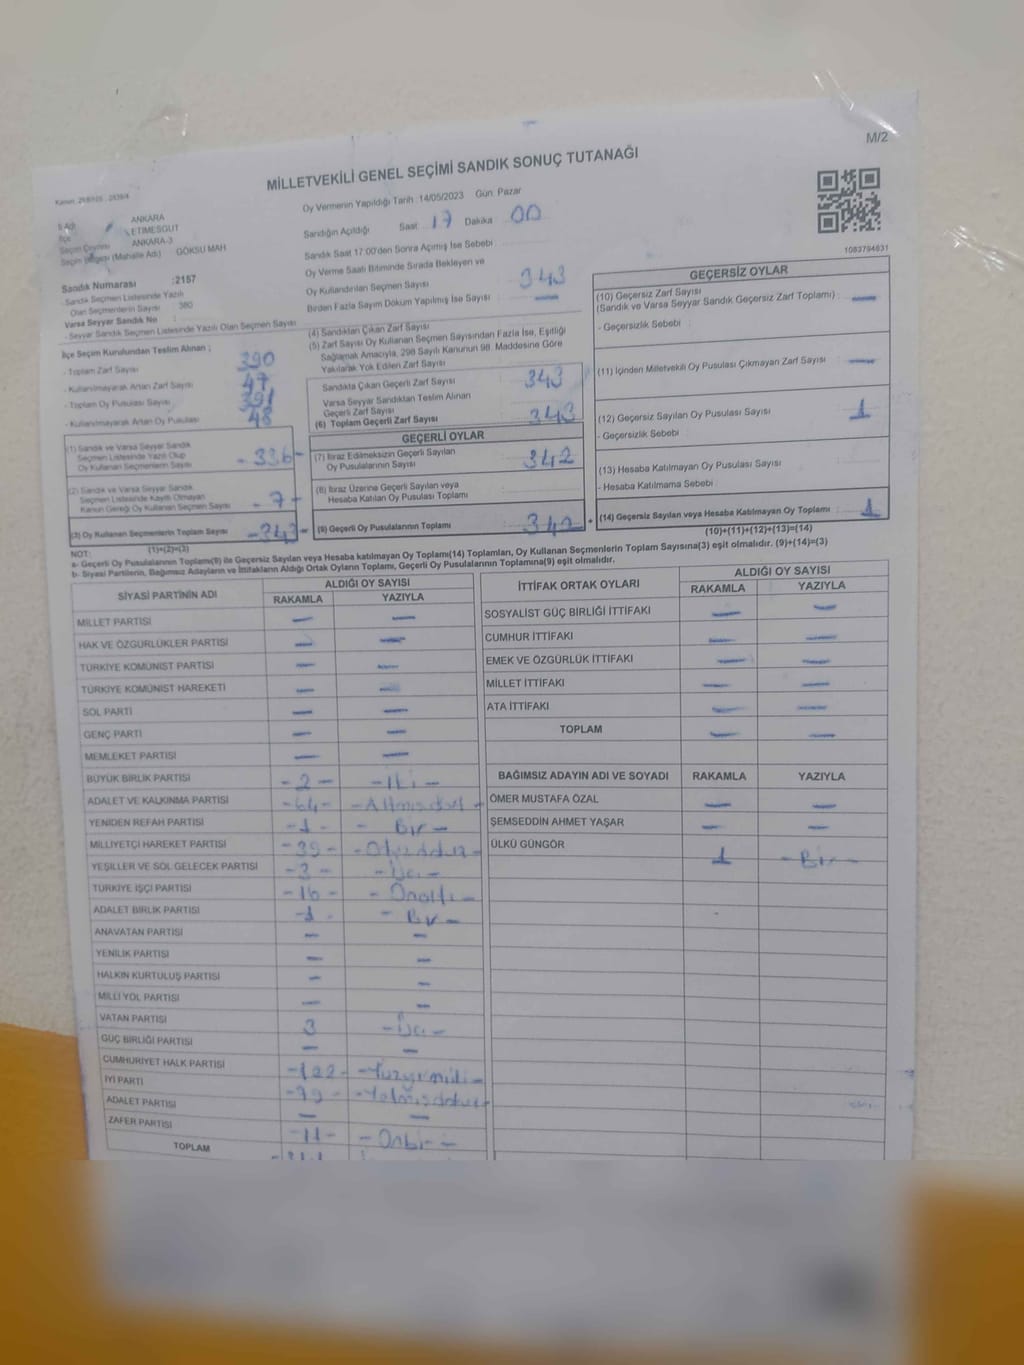 M/2
MİLLETVEKİLİ GENEL SEÇİMİ SANDIK SONUÇ TUTANAĞI
1083794631
İlçe
ANKARA
ETİMESGUT
ANKARA-3
Seçim Bölgesi (Mahalle Adı) GÖKSU MAH
Sandık Numarası :2157
- Sandık Seçmen Listesinde Yazılı
Olan Seçmenlerin Sayısı 380
Varsa Seyyar Sandık No :
- Seyyar Sandık Seçmen Listesinde Yazılı Olan Seçmen Sayısı
İlçe Seçim Kurulundan Teslim Alınan ;
- Toplam Zarf Sayısı 390
- Kullanılmayarak Artan Zarf Sayısı 47
- Toplam Oy Pusulası Sayısı 391
- Kullanılmayarak Artan Oy Pusulası 48
(1) Sandık ve Varsa Seyyar Sandık
Seçmen Listesinde Yazılı Olup
Oy Kullanan Seçmenlerin Sayısı - 336-
(2) Sandık ve Varsa Seyyar Sandık
Seçmen Listesinde Kayıtlı Olmayan
Kanun Gereği Oy Kullanan Seçmen Sayısı - 7 -
(3) Oy Kullanan Seçmenlerin Toplam Sayısı -343-
(1)+(2)=(3)
Oy Vermenin Yapıldığı Tarih :14/05/2023 Gün: Pazar
Sandığın Açıldığı Saat 17 Dakika 00
Sandık Saat 17:00'den Sonra Açılmış İse Sebebi
Oy Verme Saati Bitiminde Sırada Bekleyen ve
Oy Kullandırılan Seçmen Sayısı 343
Birden Fazla Sayım Döküm Yapılmış İse Sayısı —
(4) Sandıktan Çıkan Zarf Sayısı
(5) Zarf Sayısı Oy Kullanan Seçmen Sayısından Fazla İse, Eşitliği
Sağlamak Amacıyla, 298 Sayılı Kanunun 98. Maddesine Göre
Yakılarak Yok Edilen Zarf Sayısı
Sandıkta Çıkan Geçerli Zarf Sayısı 343
Varsa Seyyar Sandıktan Teslim Alınan
Geçerli Zarf Sayısı
(6) Toplam Geçerli Zarf Sayısı 343
GEÇERLİ OYLAR
(7) İtiraz Edilmeksizin Geçerli Sayılan
Oy Pusulalarının Sayısı 342
(8) İtiraz Üzerine Geçerli Sayılan veya
Hesaba Katılan Oy Pusulası Toplamı
(9) Geçerli Oy Pusulalarının Toplamı 342
GEÇERSİZ OYLAR
(10) Geçersiz Zarf Sayısı
(Sandık ve Varsa Seyyar Sandık Geçersiz Zarf Toplamı) —
- Geçersizlik Sebebi
(11) İçinden Milletvekili Oy Pusulası Çıkmayan Zarf Sayısı —
(12) Geçersiz Sayılan Oy Pusulası Sayısı 1
- Geçersizlik Sebebi
(13) Hesaba Katılmayan Oy Pusulası Sayısı
- Hesaba Katılmama Sebebi
+ (14) Geçersiz Sayılan veya Hesaba Katılmayan Oy Toplamı 1
(10)+(11)+(12)+(13)=(14)
NOT:
a- Geçerli Oy Pusulalarının Toplamı(9) ile Geçersiz Sayılan veya Hesaba katılmayan Oy Toplamı(14) Toplamları, Oy Kullanan Seçmenlerin Toplam Sayısına(3) eşit olmalıdır. (9)+(14)=(3)
b- Siyasi Partilerin, Bağımsız Adayların ve İttifakların Aldığı Ortak Oyların Toplamı, Geçerli Oy Pusulalarının Toplamına(9) eşit olmalıdır.
SİYASİ PARTİNİN ADI ALDIĞI OY SAYISI
RAKAMLA YAZIYLA
MİLLET PARTİSİ — —
HAK VE ÖZGÜRLÜKLER PARTİSİ — —
TÜRKİYE KOMÜNİST PARTİSİ — —
TÜRKİYE KOMÜNİST HAREKETİ — —
SOL PARTİ — —
GENÇ PARTİ — —
MEMLEKET PARTİSİ — —
BÜYÜK BİRLİK PARTİSİ -2- -İki-
ADALET VE KALKINMA PARTİSİ -64- -Altmışdört-
YENİDEN REFAH PARTİSİ -1- -Bir-
MİLLİYETÇİ HAREKET PARTİSİ -39- -Otuzdokuz-
YEŞİLLER VE SOL GELECEK PARTİSİ -3- -Üç-
TÜRKİYE İŞÇİ PARTİSİ -16- -Onaltı-
ADALET BİRLİK PARTİSİ -1- -Bir-
ANAVATAN PARTİSİ — —
YENİLİK PARTİSİ — —
HALKIN KURTULUŞ PARTİSİ — —
MİLLİ YOL PARTİSİ — —
VATAN PARTİSİ 3 -Üç-
GÜÇ BİRLİĞİ PARTİSİ — —
CUMHURİYET HALK PARTİSİ -122- -Yüzyirmiiki-
İYİ PARTİ -79- -Yetmişdokuz-
ADALET PARTİSİ — —
ZAFER PARTİSİ -11- -Onbir-
TOPLAM
İTTİFAK ORTAK OYLARI ALDIĞI OY SAYISI
RAKAMLA YAZIYLA
SOSYALİST GÜÇ BİRLİĞİ İTTİFAKI — —
CUMHUR İTTİFAKI — —
EMEK VE ÖZGÜRLÜK İTTİFAKI — —
MİLLET İTTİFAKI — —
ATA İTTİFAKI — —
TOPLAM — —
BAĞIMSIZ ADAYIN ADI VE SOYADI RAKAMLA YAZIYLA
ÖMER MUSTAFA ÖZAL — —
ŞEMSEDDİN AHMET YAŞAR — —
ÜLKÜ GÜNGÖR 1 -Bir-